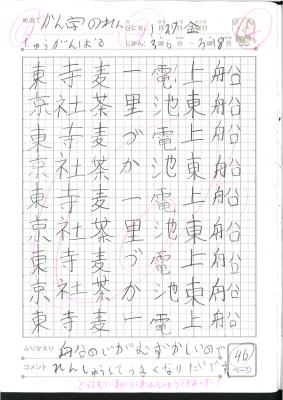 めあて かん字のれん
しゅうがんばる
日にち 1月27日金曜日
じかん 3時0分〜3時18分
東 寺 麦 一 電 上 船
京 社 茶 里 池 東 船
東 寺 麦 づ 電 上 船
京 社 茶 か 池 東 船
東 寺 麦 一 電 上 船
京 社 茶 里 池 東 船
東 寺 麦 づ 電 上 船
京 社 茶 か 池 東 船
東 寺 麦 一 電 上 船
ふりかえり 船のじがむずかしいので
コメント れんしゅうしてうまくなりたいです
46
ページ
とってもていねいにれんしゅうできました